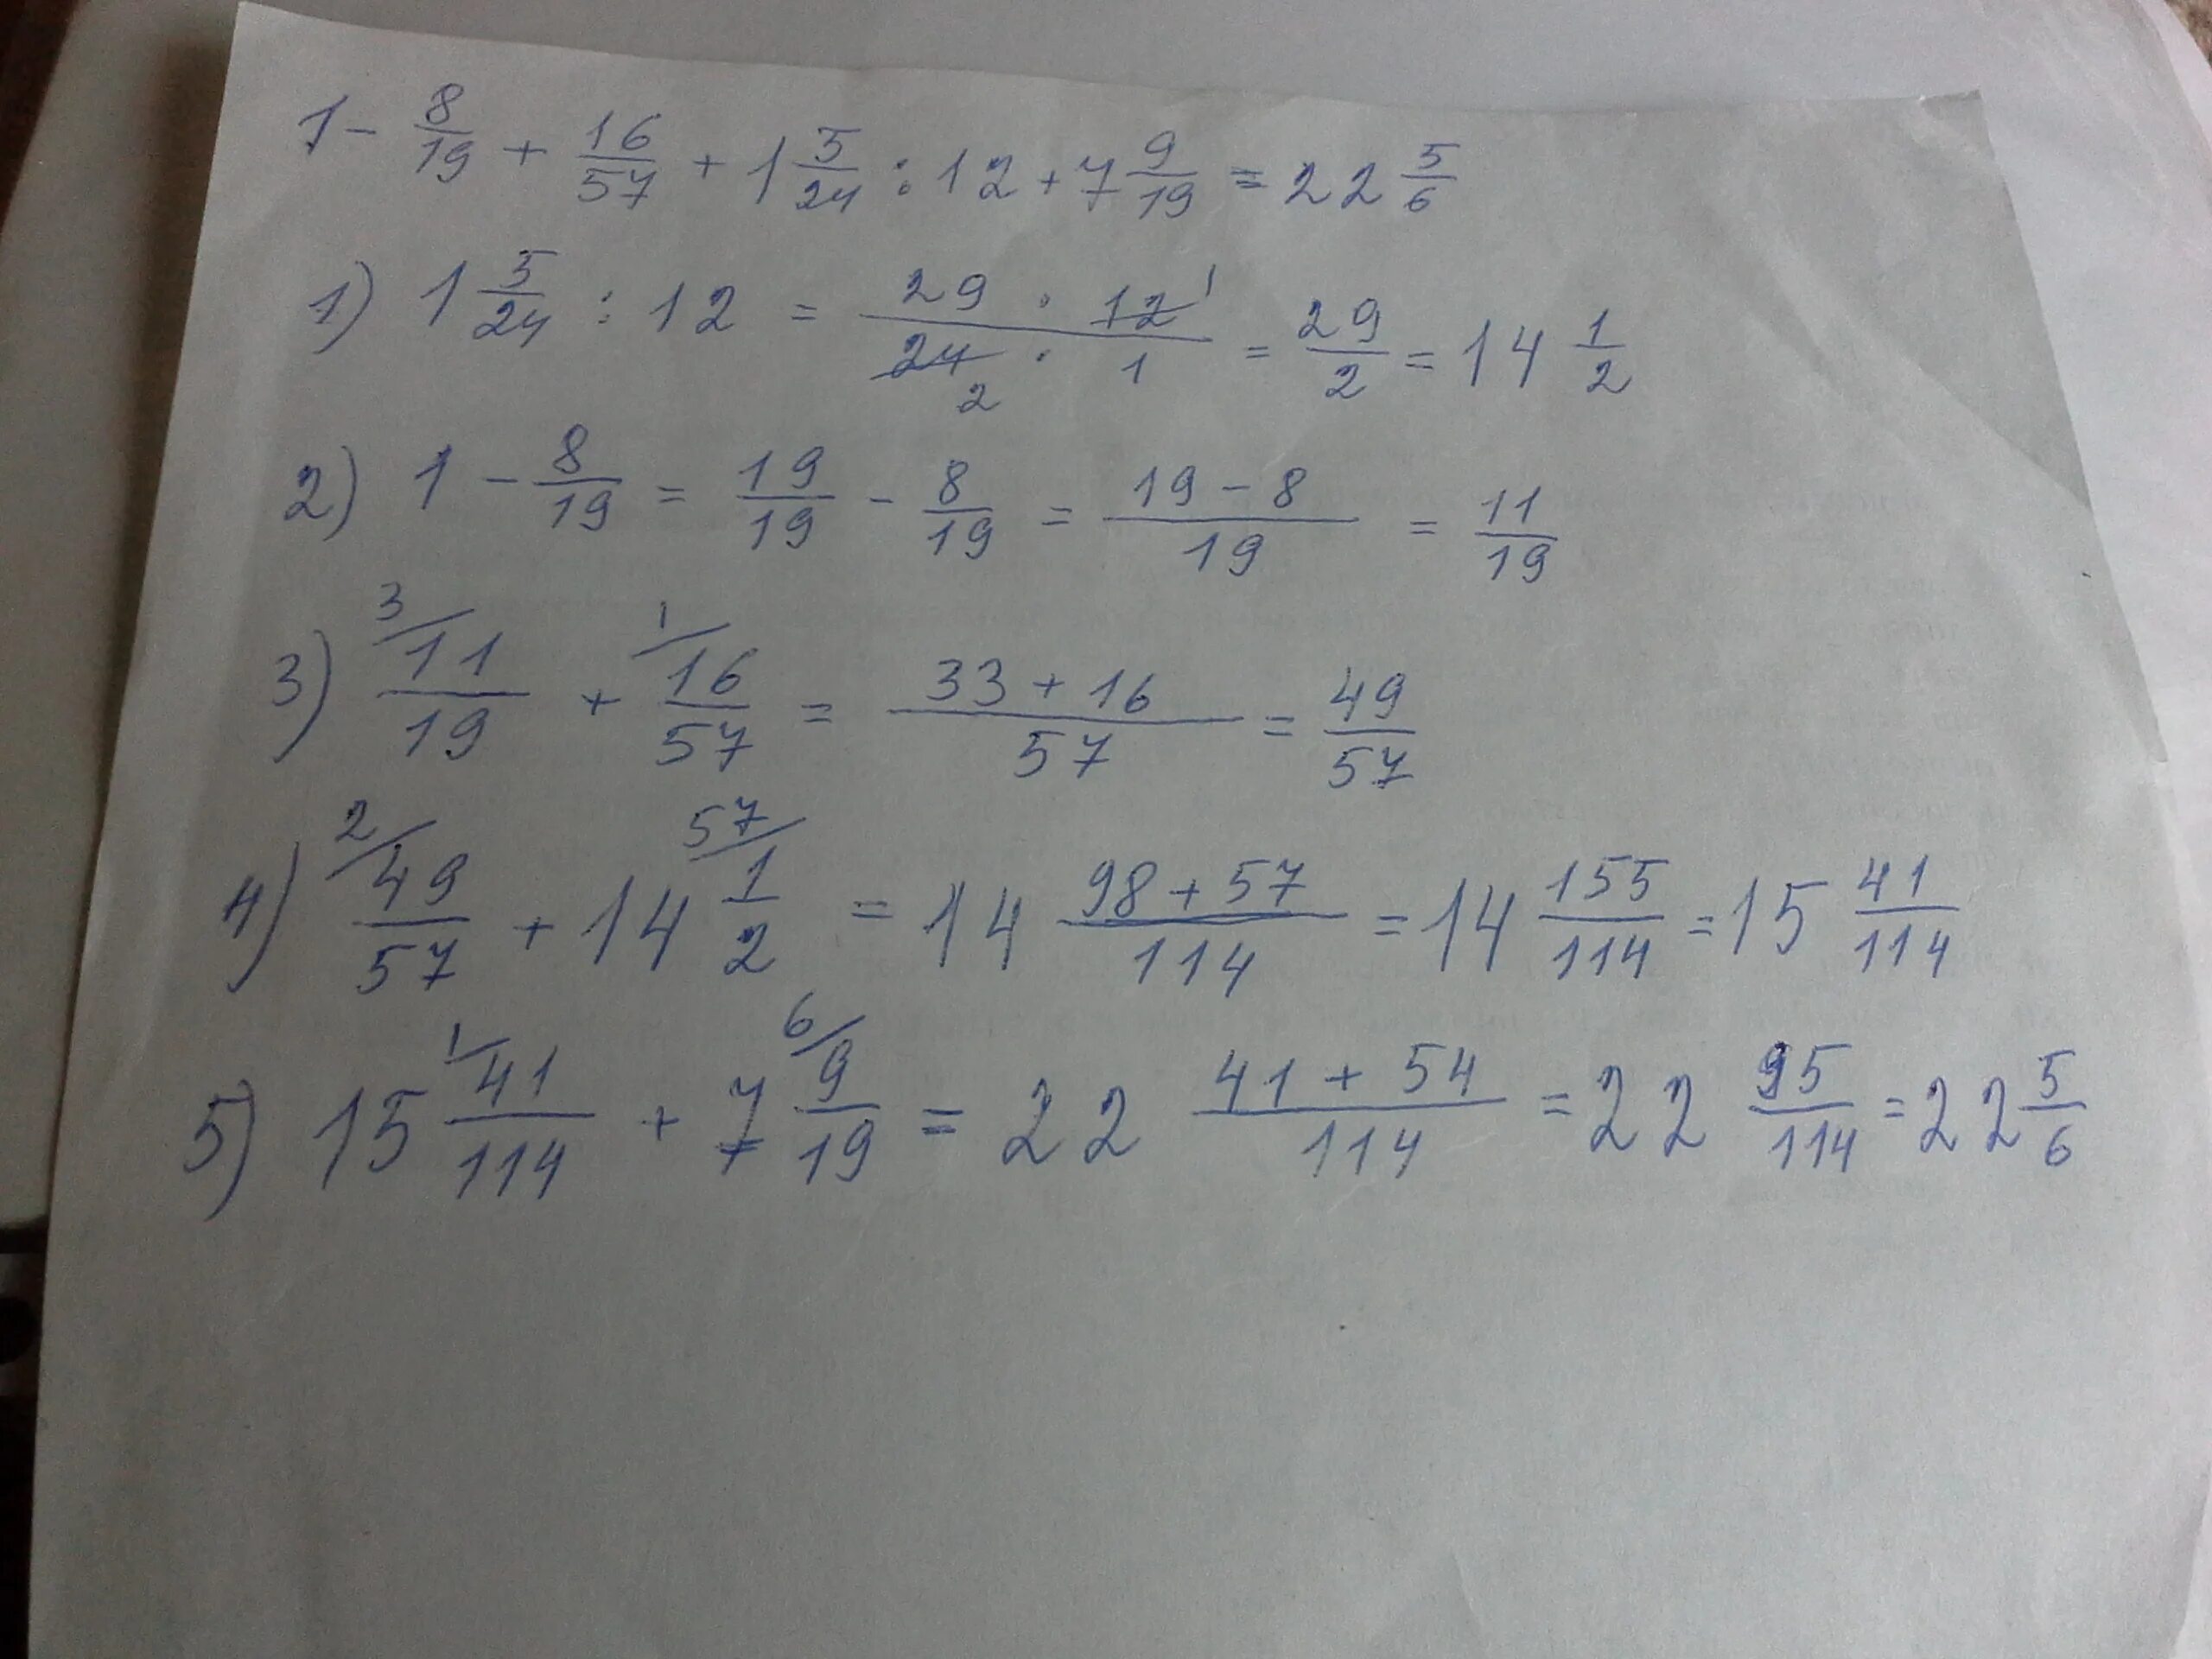 1 - 8/19 + 16/57 + 1 5/24 : 12 + 7 9/19 = 22 5/6
1) 1 5/24 : 12 = 29 · 12 1 / 24 2 · 1 = 29/2 = 14 1/2
2) 1 - 8/19 = 19/19 - 8/19 = 19 - 8 / 19 = 11/19
3) 3/ 11/19 + 1/ 16/57 = 33 + 16 / 57 = 49/57
4) 2/ 49/57 + 14 57/ 1/2 = 14 98 + 57 / 114 = 14 155/114 = 15 41/114
5) 15 1/ 41/114 + 7 6/ 9/19 = 22 41 + 54 / 114 = 22 95/114 = 22 5/6